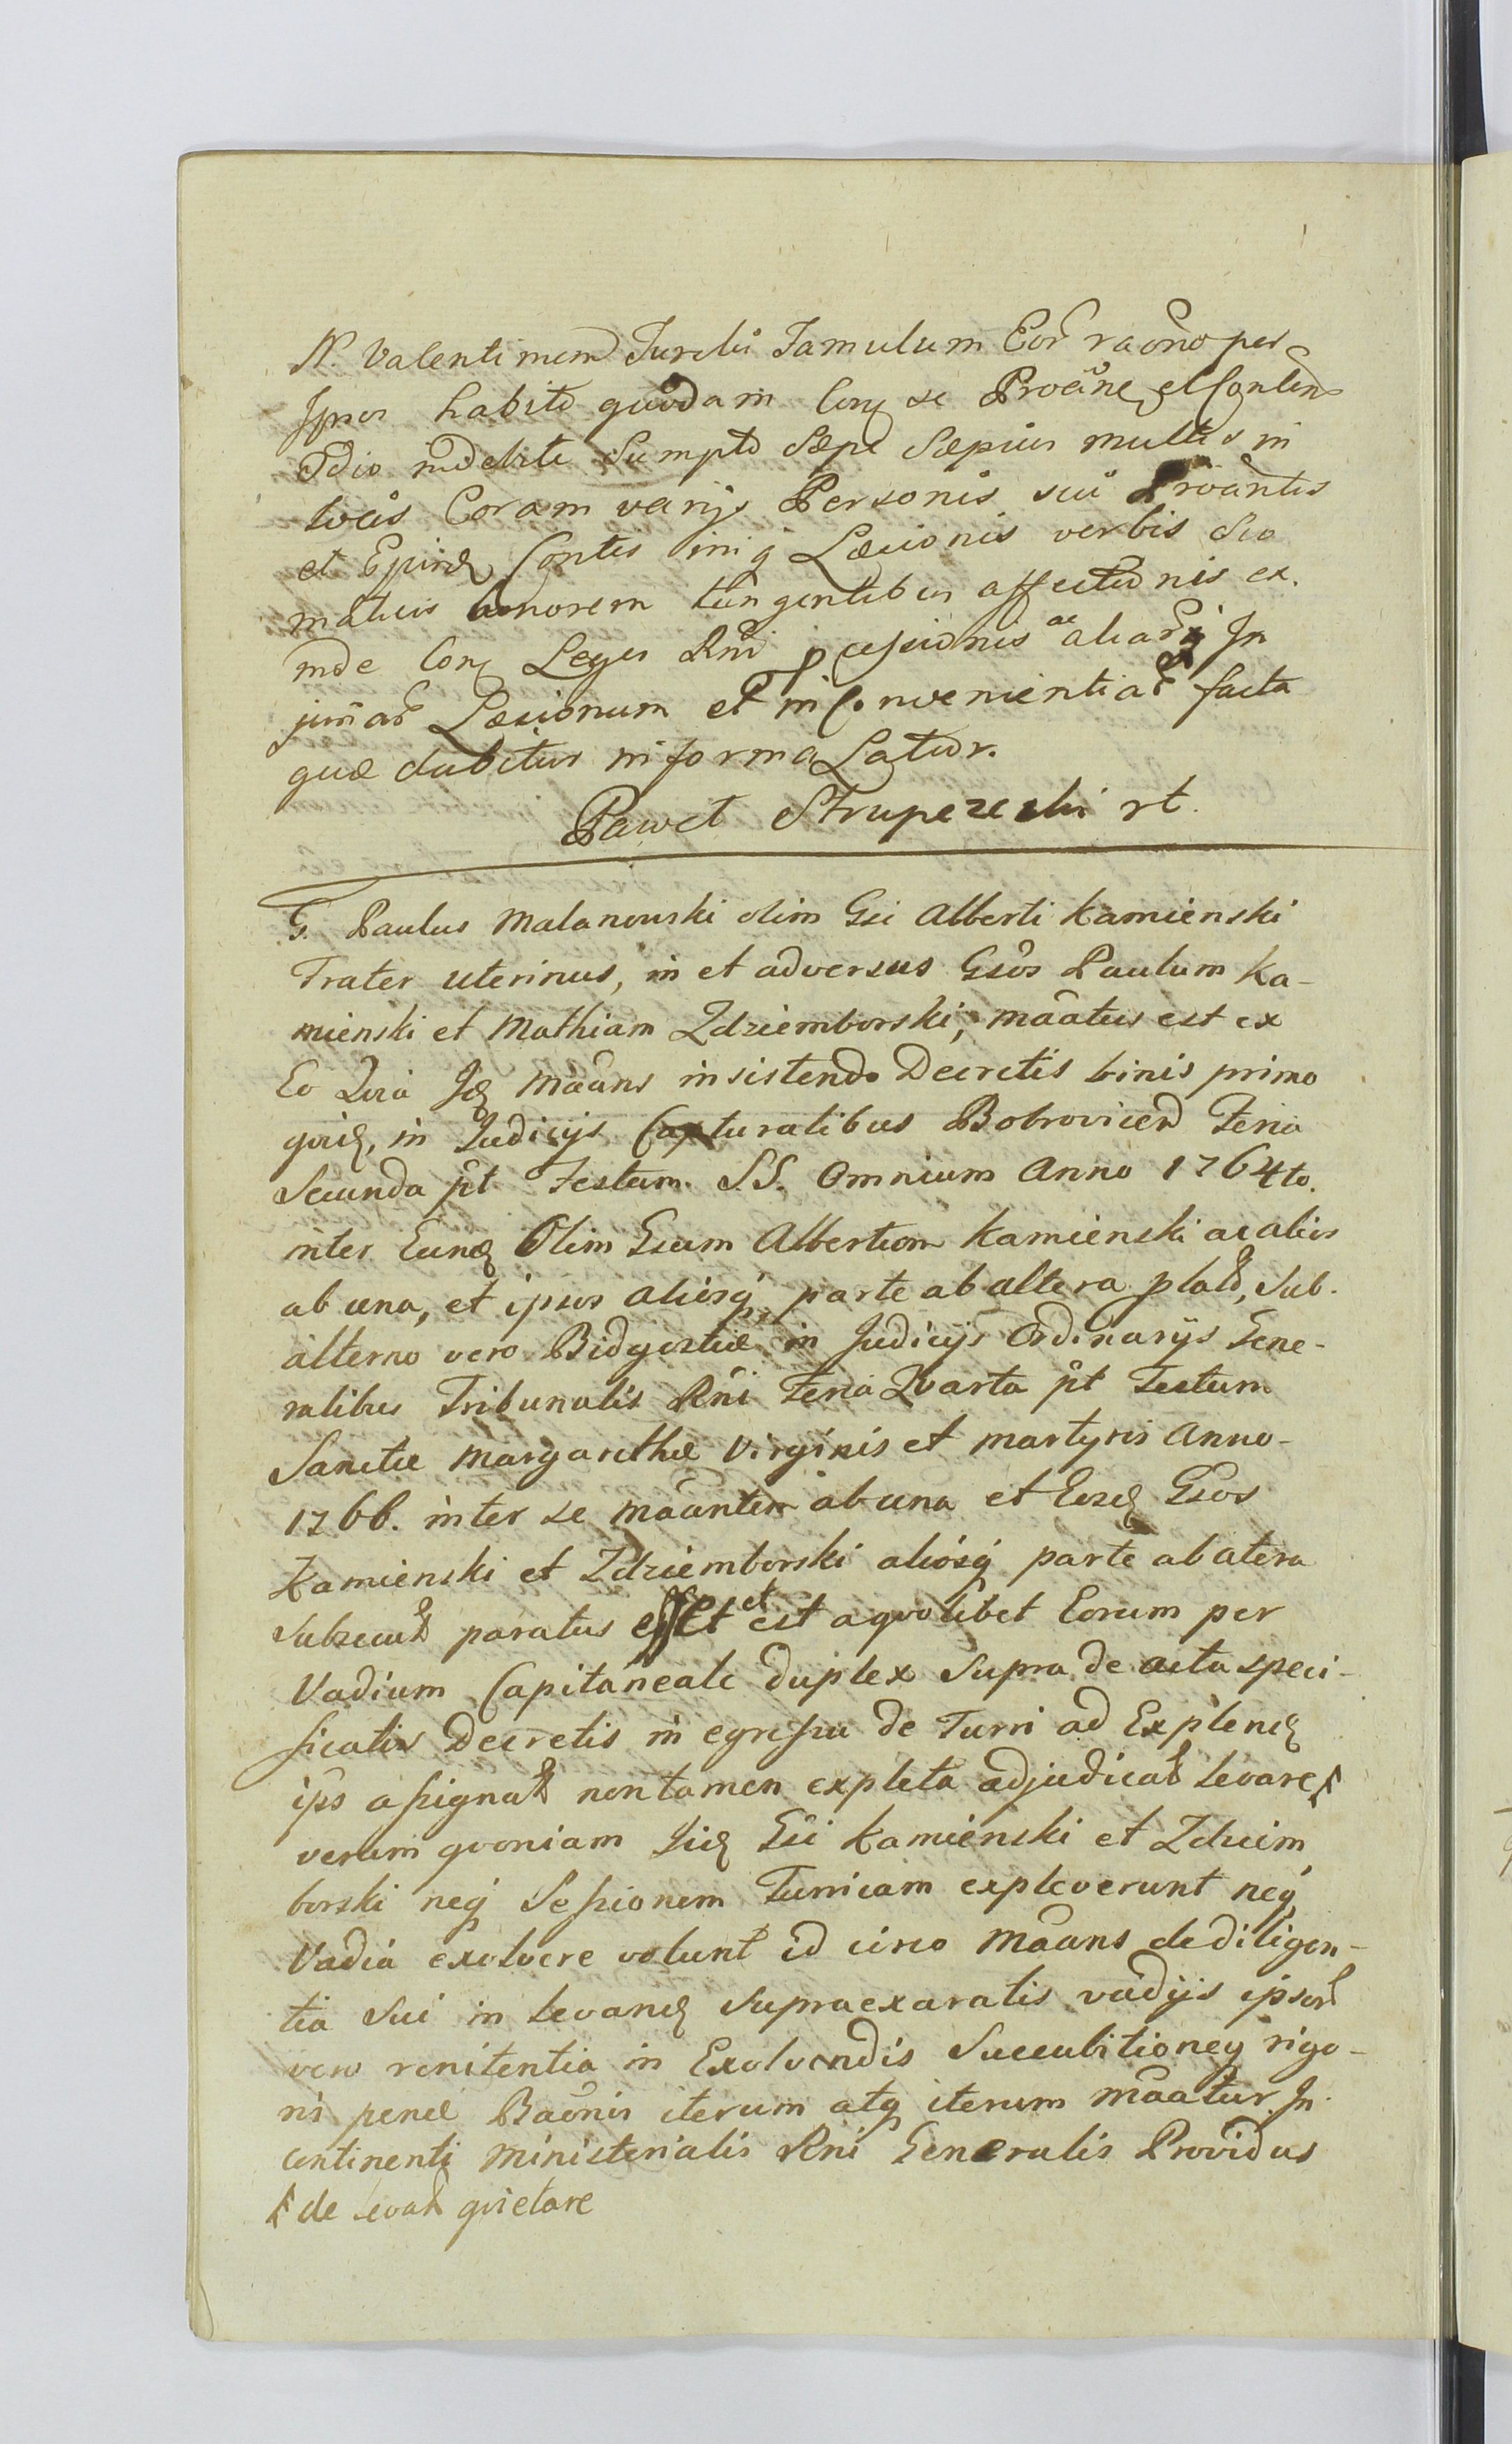 N. Valentinum Turski Famulum Eor raõno per
Ipsos habito quodam Con se Proãne et Conten
Odio indebite Sumpto Sæpe Sæpius multis in
locis Coram varijs Personis sui Proãntis
et Contis Læsionis verbis Sto
maticis honorem tangentibus affectionis ex
inde Con Leges Rni ac aliarq In
juriar Læsionum et inconvenientiar facta
quæ dubitur in forma Latior.
Paweł Strupczeski rt.
G. Paulus Malanowski olim Gsi Alberti Kamienski
Frater uterinus, in et adversus Gsos Paulum Ka-
mienski et Mathiam Zdziemborski, mãatus est ex
Eo Quia Id mãans insistendo Decretis binis primo
qvid, in Judicijs Capturalibus Bobrovicen Feria
Secunda pt Festum SS. Omnium Anno 1764to.
inter Eund Olim Gsum Albertum Kamienski ac alios
ab una, et ipsos aliosq, parte ab altera plato, sub-
alterno vero Bidgostiæ in Judicijs Ordinarijs Gene-
ralibus Tribunalis Rni Feria Qvarta pt Festum
Sanctæ Margarethæ Virginis et martyris Anno
1766. inter se mãantem ab una et Eosd Gsos
Kamienski et Zdziemborski aliosq parte ab atera
Subsecut paratus esset et est a qvolibet Eorum per
Vadium Capitaneale duplex Supra de acta speci-
ficatis Decretis in egressu de Turri ad Explend
ips assignat non tamen expleta adjudicat levare
verum qvoniam Iid Gsi Kamienski et Zdziem
borski neq Sessionem Turricam expleverunt neq
Vadia exolvere volunt id circo Mãans de diligen-
tia sui in levand supraexaratis vadijs ipsor
vero renitentia in Exolvendis Succubitioneq rigo-
ris penæ Baõnis iterum atq iterum mãatur. In
continenti Ministerialis Rni Generalis Providus
de levat qvietare